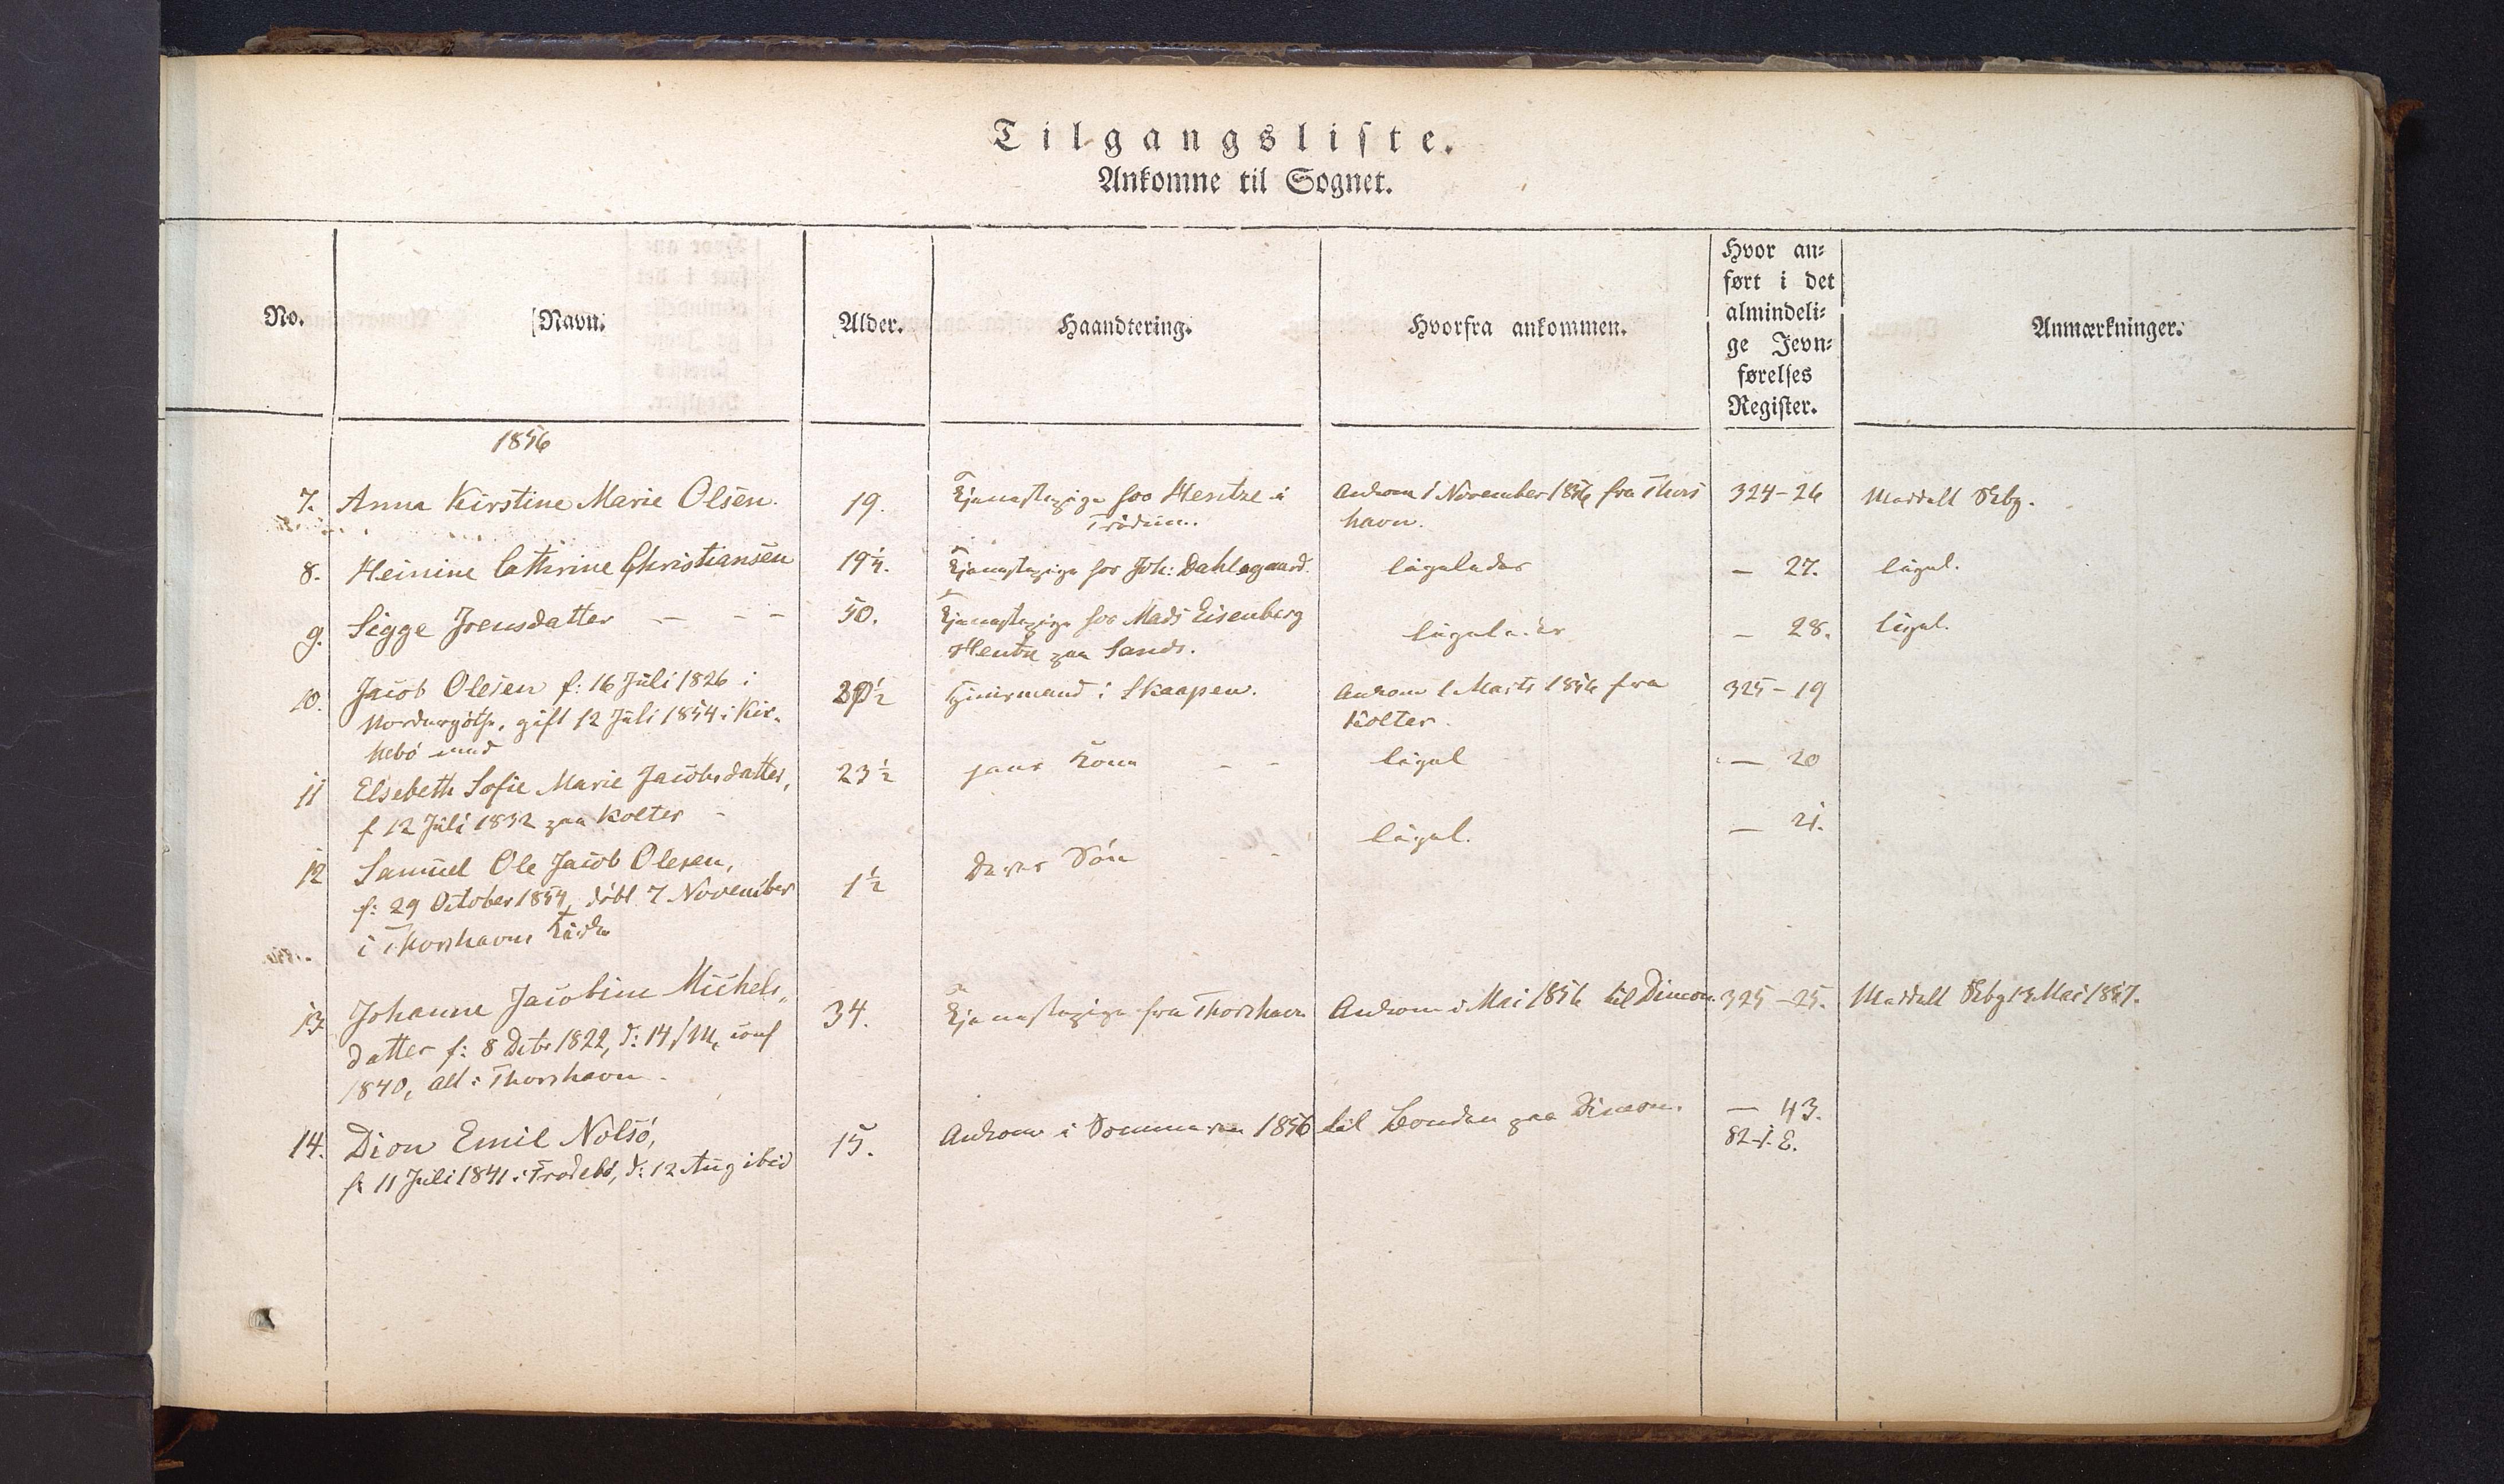 Tilgangsliste.
Ankomne til Sognet.
No. Navn. Alder. Haandtering. Hvorfra ankommen. Hvor an=
ført i det
almindeli=
ge Jevn=
førelses
Register. Anmærkninger.
1856
7. Anna Kirstine Marie Olsen. 19. Tjenestepige hos Hentze i Ankom i November 1856 fra Thors 324-26 Meddelt Skbg.
havn.
8. Heinine Cathrine Christiansen 19½. Tjenestepige hos Joh: Dahlsgaard. ligeledes — 27. ligel.
9. Sigge Joensdatter — - - 50. Tjenestepige hos Mads Eisenberg ligeledes — 28. ligel.
Hentze paa Sand.
10. Jacob Olesen f: 16 Juli 1826 i 29½ Huusmand i Skaapen. Ankom i Marts 1856 fra 325-19
Nordurgöthe, gift 12 Juli 1854 i Kir- Kolter.
kebö med
11 Elsebeth Sofie Marie Jacobsdatter, 23½ hans Kone - - ligel — 20
f 12 Juli 1832 paa Kolter -
12 Samuel Ole Jacob Olesen, 1½ Deres Sön - - ligel. — 21.
f: 29 October 1854, döbt 7 November
i Thorshavns Kirke
13 Johanne Jacobine Michels- 34. Tjenestepige fra Thorshavn Ankom i Mai 1856 til Dimon. 325-25. Meddelt Skbg 13 Mai 1857.
datter f: 8 Dcbr 1822, d: 14/ conf
1840, alt i Thorshavn.
14. Dion Emil Nolsö, 15. Ankom i Sommeren 1856 til Bonden paa Dimon. — 43.
f: 11 Juli 1841 i Frodebö, d: 12 Aug ibid 82-1. E.